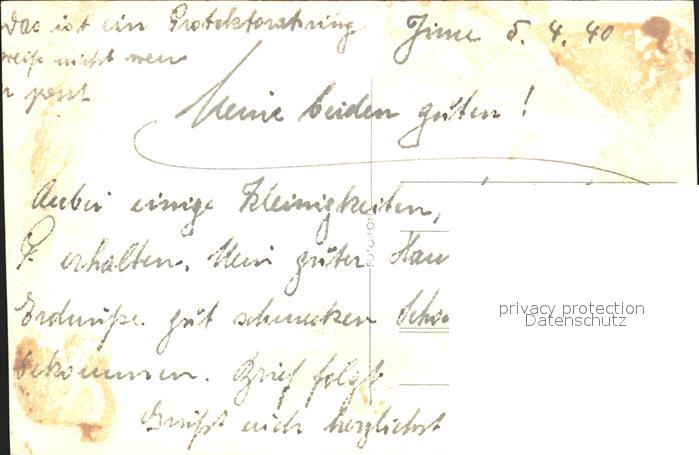 Das ist ein Protektoratring
weiß nicht wem
er passt
Jime 5. 4. 40
Meine beiden guten!
Anbei einige Kleinigkeiten,
P. erhalten. Mein guter
Erdnüße gut schmecken
bekommen. Brief folgt
Grüßt euch herzlichst
FOTO-FON
privacy protection
Datenschutz